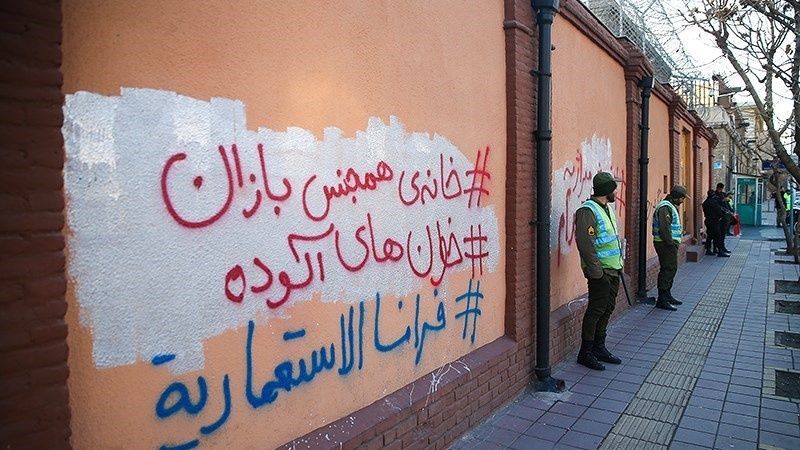 #خانه‌ی همجنس بازان
#خون های آلوده
#فرنسا الاستعمارية